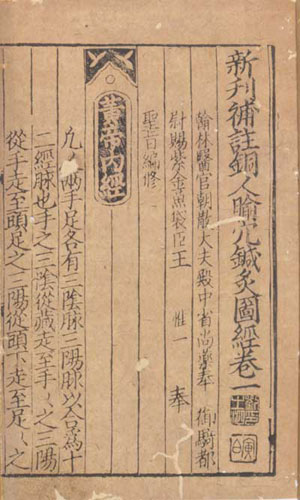 新刊補註銅人腧穴鍼灸圖經卷一
翰林醫官朝散大夫殿中省尚藥奉 御騎都
尉賜紫金魚袋臣王 惟一 奉
聖旨編修
黃帝內經
凡人兩手足各有三陰脉三陽脉以合爲十
二經脉也手之三陰從藏走至手〻之三陽
從手走至頭足之三陽從頭下走至足〻之